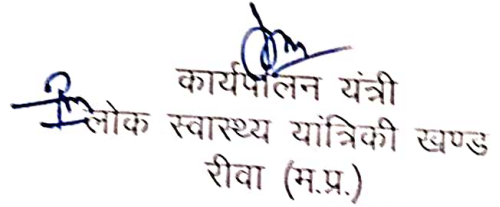 कार्यपालन यंत्री
लोक स्वास्थ्य यांत्रिकी खण्ड
रीवा (म.प्र.)